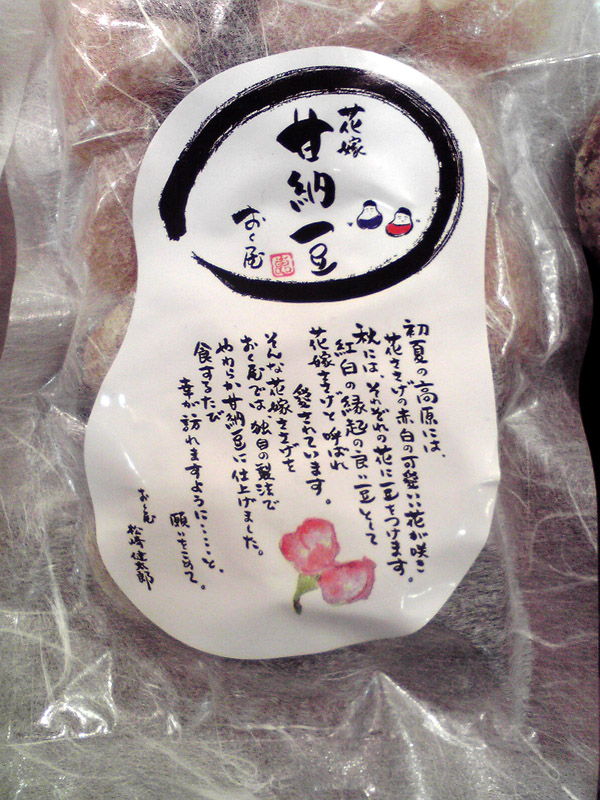 花嫁
甘納豆
おく屋
初夏の高原には、
花ささげの赤白の可愛いい花が咲き
秋には、それぞれの花に豆をつけます。
紅白の縁起の良い豆として
花嫁ささげと呼ばれ
愛されています。
そんな花嫁ささげを
おく屋では独自の製法で
やわらか甘納豆に仕上げました。
食するたび
幸が訪れますように……と、
願いをこめて。
おく屋
松崎健太郎